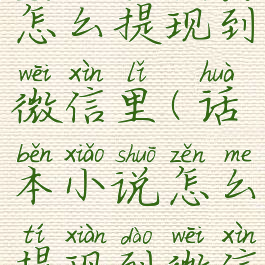 怎么提现到
wēi xìn lǐ huà
微信里(话
běn xiǎo shuō zěn me
本小说怎么
tí xiàn dào wēi xìn
提现到微信